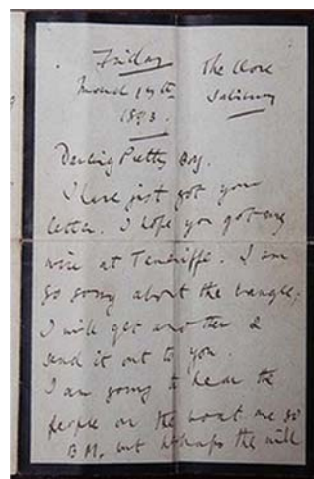 Friday
The Close
March 17th
Salisbury
1893.
Darling Pretty Boy.
I have just got your
letter. I hope you got my
wire at Teneriffe. I am
so sorry about the bangle,
I will get another &
send it out to you.
I am going to hear the
people on the boat me so
B M, but perhaps the will